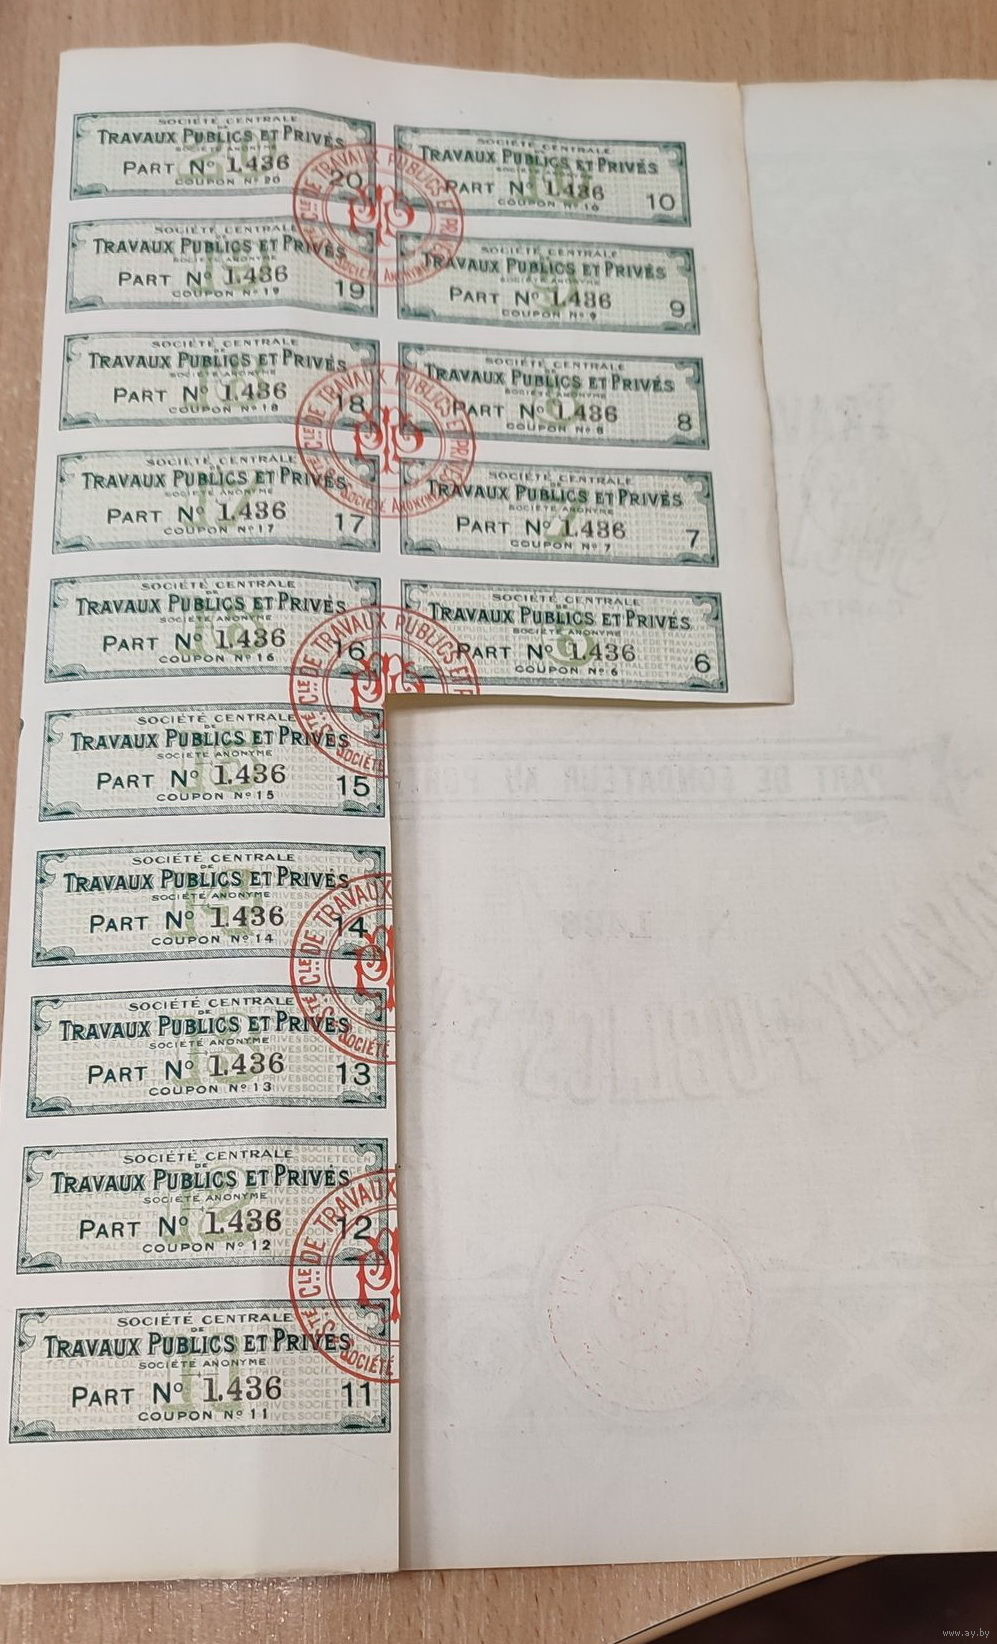 SOCIÉTÉ CENTRALE
DE
TRAVAUX PUBLICS ET PRIVÉS
SOCIÉTÉ ANONYME
PART Nº 1.436
COUPON Nº 20
20
SOCIÉTÉ CENTRALE
TRAVAUX PUBLICS ET PRIVÉS
SOCIÉTÉ ANONYME
PART Nº 1.436
COUPON Nº 19
19
SOCIÉTÉ CENTRALE
TRAVAUX PUBLICS ET PRIVÉS
SOCIÉTÉ ANONYME
PART Nº 1.436
COUPON Nº 18
18
SOCIÉTÉ CENTRALE
TRAVAUX PUBLICS ET PRIVÉS
SOCIÉTÉ ANONYME
PART Nº 1.436
COUPON Nº 17
17
SOCIÉTÉ CENTRALE
DE
TRAVAUX PUBLICS ET PRIVÉS
SOCIÉTÉ ANONYME
PART Nº 1.436
COUPON Nº 16
16
SOCIÉTÉ CENTRALE
DE
TRAVAUX PUBLICS ET PRIVÉS
SOCIÉTÉ ANONYME
PART Nº 1.436
COUPON Nº 15
15
SOCIÉTÉ CENTRALE
DE
TRAVAUX PUBLICS ET PRIVÉS
SOCIÉTÉ ANONYME
PART Nº 1.436
COUPON Nº 14
14
SOCIÉTÉ CENTRALE
DE
TRAVAUX PUBLICS ET PRIVÉS
SOCIÉTÉ ANONYME
PART Nº 1.436
COUPON Nº 13
13
SOCIÉTÉ CENTRALE
DE
TRAVAUX PUBLICS ET PRIVÉS
SOCIÉTÉ ANONYME
PART Nº 1.436
COUPON Nº 12
12
SOCIÉTÉ CENTRALE
DE
TRAVAUX PUBLICS ET PRIVÉS
SOCIÉTÉ ANONYME
PART Nº 1.436
COUPON Nº 11
11
SOCIÉTÉ CENTRALE
TRAVAUX PUBLICS ET PRIVÉS
PART Nº 1.436
COUPON Nº 10
10
SOCIÉTÉ CENTRALE
TRAVAUX PUBLICS ET PRIVÉS
SOCIÉTÉ ANONYME
PART Nº 1.436
COUPON Nº 9
9
SOCIÉTÉ CENTRALE
TRAVAUX PUBLICS ET PRIVÉS
SOCIÉTÉ ANONYME
PART Nº 1.436
COUPON Nº 8
8
SOCIÉTÉ CENTRALE
TRAVAUX PUBLICS ET PRIVÉS
SOCIÉTÉ ANONYME
PART Nº 1.436
COUPON Nº 7
7
SOCIÉTÉ CENTRALE
DE
TRAVAUX PUBLICS ET PRIVÉS
SOCIÉTÉ ANONYME
PART Nº 1.436
COUPON Nº 6
6
STÉ CLE DE TRAVAUX PUBLICS ET PRIVÉS
SOCIÉTÉ ANONYME
STÉ CLE DE TRAVAUX PUBLICS ET PRIVÉS
SOCIÉTÉ ANONYME
STÉ CLE DE TRAVAUX PUBLICS ET
SOCIÉTÉ
STÉ CLE DE TRAVAUX
SOCIÉTÉ
STÉ CLE DE TRAVAUX
SOCIÉTÉ
www.ay.by